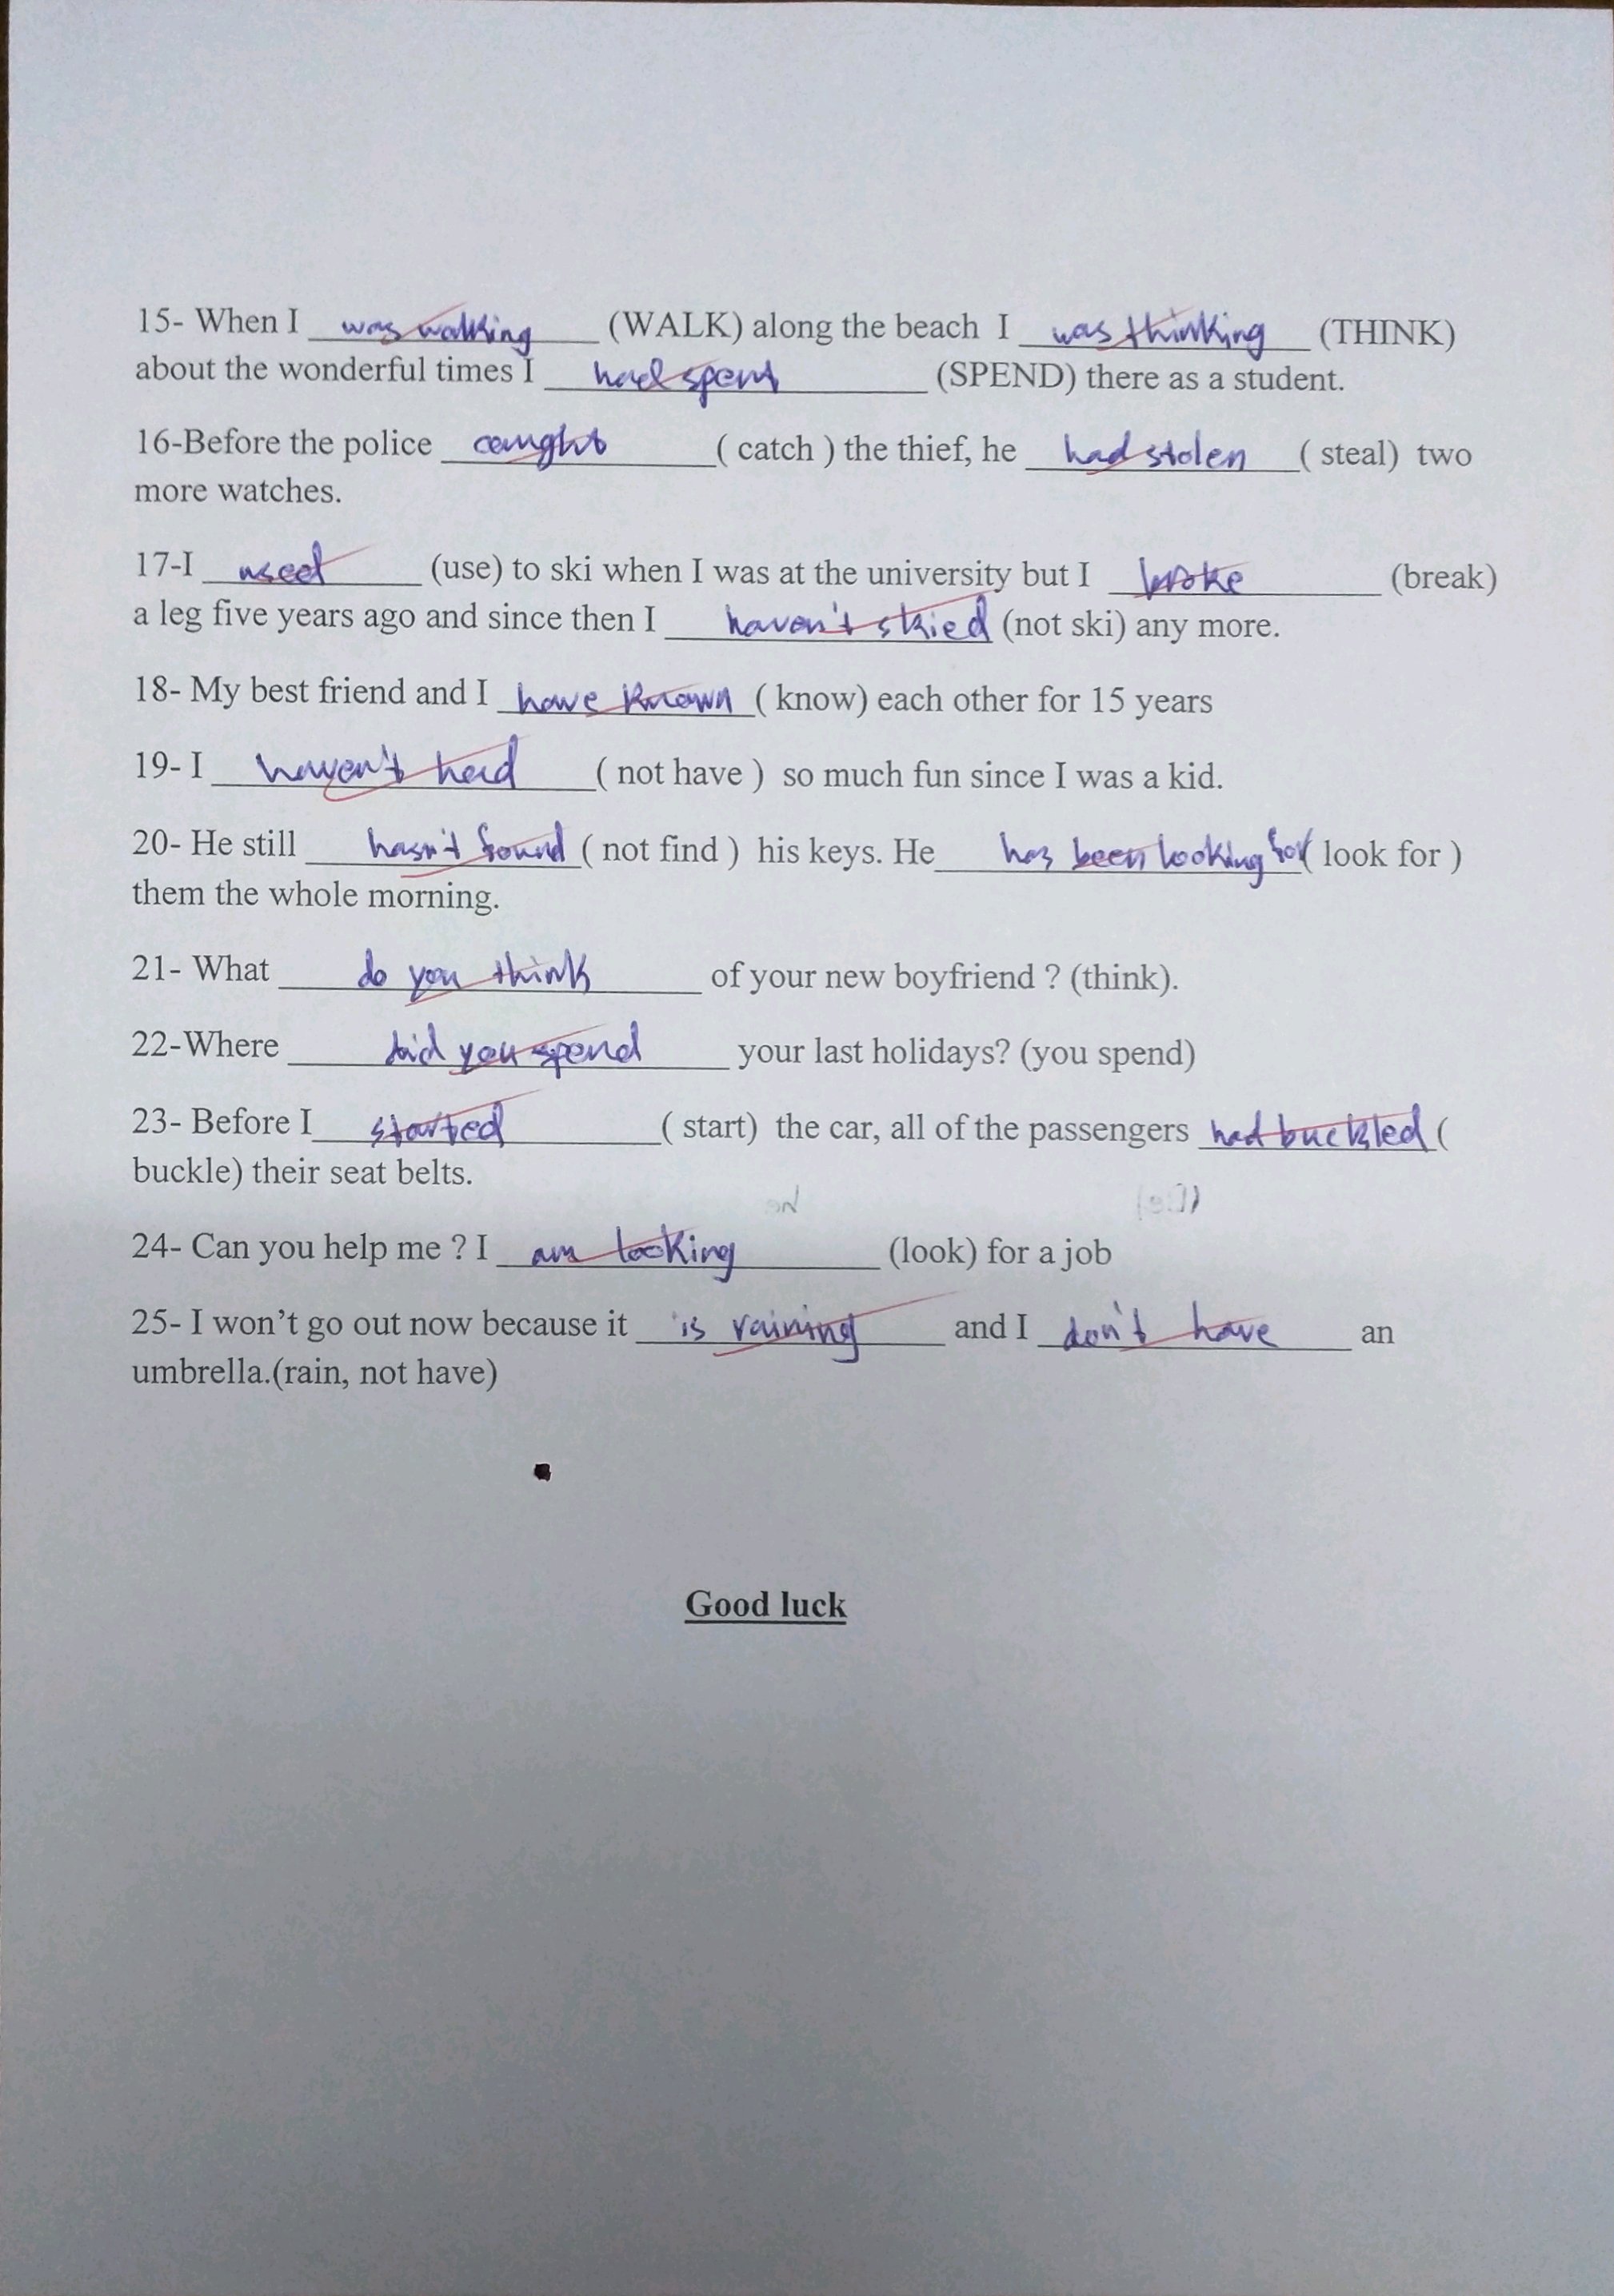 15- When I was walking (WALK) along the beach I was thinking (THINK)
about the wonderful times I had spent (SPEND) there as a student.
16-Before the police caught ( catch ) the thief, he had stolen ( steal) two
more watches.
17-I used (use) to ski when I was at the university but I broke (break)
a leg five years ago and since then I haven't skied (not ski) any more.
18- My best friend and I have known ( know) each other for 15 years
19- I haven't had ( not have ) so much fun since I was a kid.
20- He still hasn't found ( not find ) his keys. He has been looking for ( look for )
them the whole morning.
21- What do you think of your new boyfriend ? (think).
22-Where did you spend your last holidays? (you spend)
23- Before I started ( start) the car, all of the passengers had buckled (
buckle) their seat belts.
24- Can you help me ? I am looking (look) for a job
25- I won't go out now because it is raining and I don't have an
umbrella.(rain, not have)
Good luck